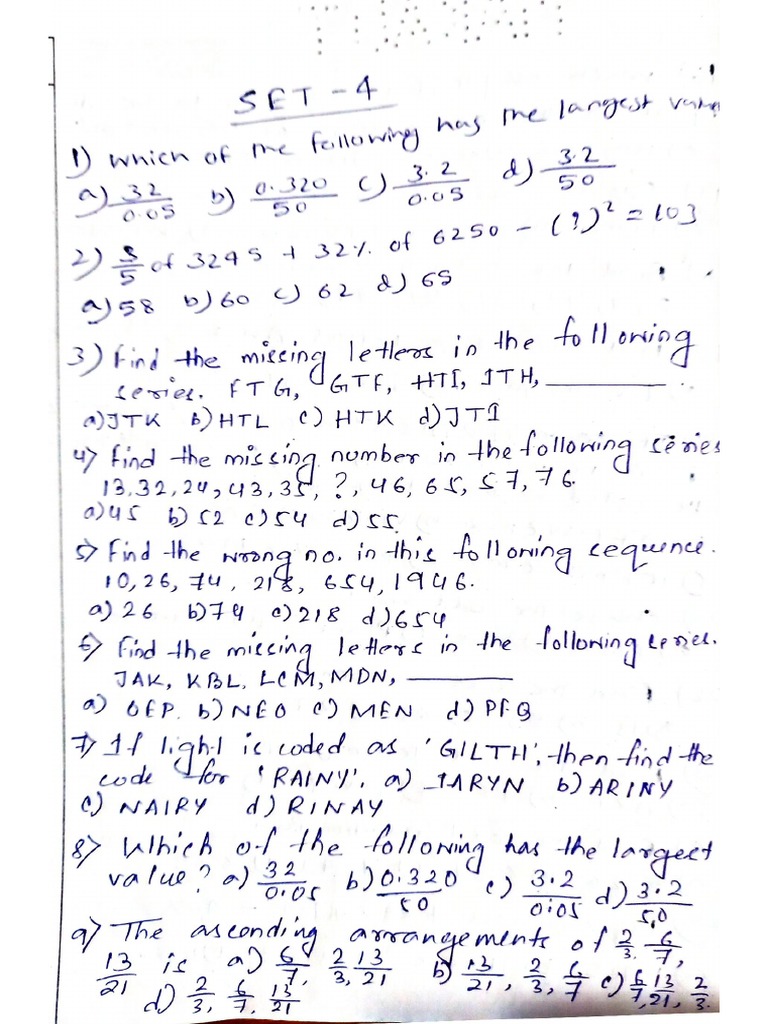 SET-4
1) which of the following has the largest value
a) 32/0.05 b) 0.320/50 c) 3.2/0.05 d) 3.2/50
2) 3/5 of 3245 + 32% of 6250 - (?)² = 103
a) 58 b) 60 c) 62 d) 65
3) Find the missing letters in the following
series. FTG, GTF, HTI, ITH, ______
a) JTK b) HTL c) HTK d) JTI
4) find the missing number in the following series
13,32,24,43,35,?,46,65,57,76.
a) 45 b) 52 c) 54 d) 55
5) Find the wrong no. in this following sequence.
10,26,74,218,654,1946.
a) 26 b) 74 c) 218 d) 654
6) Find the missing letters in the following series.
JAK, KBL, LCM, MDN, ______
a) OEP. b) NEO c) MEN d) PFQ
7) If light is coded as 'GILTH', then find the
code for 'RAINY'. a) IARYN b) ARINY
c) NAIRY d) RINAY
8) Which of the following has the largest
value? a) 32/0.05 b) 0.320/50 c) 3.2/0.05 d) 3.2/50
9) The asconding arrangements of 2/3, 6/7,
13/21 is a) 6/7, 2/3, 13/21 b) 13/21, 2/3, 6/7 c) 6/7, 13/21, 2/3
d) 2/3, 6/7, 13/21